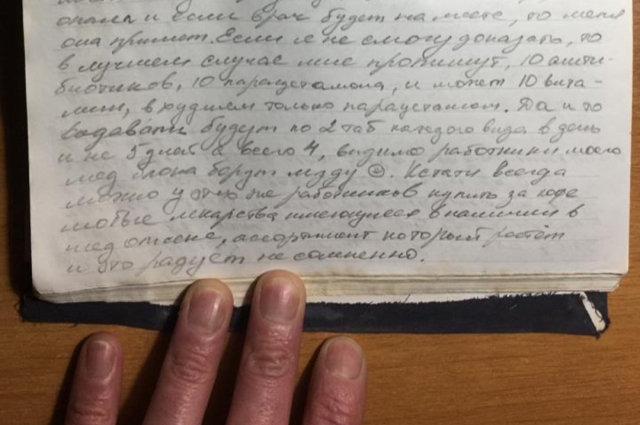 и если врач будет на месте, то меня
она примет. Если я не смогу доказать, то
в лучшем случае мне пропишут, 10 анти-
биотиков, 10 парацетамола, и может 10 вита-
мин, в худшем только парацетамол. Да и то
выдавать будут по 2 таб каждого вида в день
и не 5 дней а всего 4, видимо работники моего
мед блока берут мзду ☺. Кстати всегда
можно у этих же работников купить за кофе
любые лекарства имеющиеся в наличии в
мед отсеке, ассортимент который растёт
и это радует несомненно.